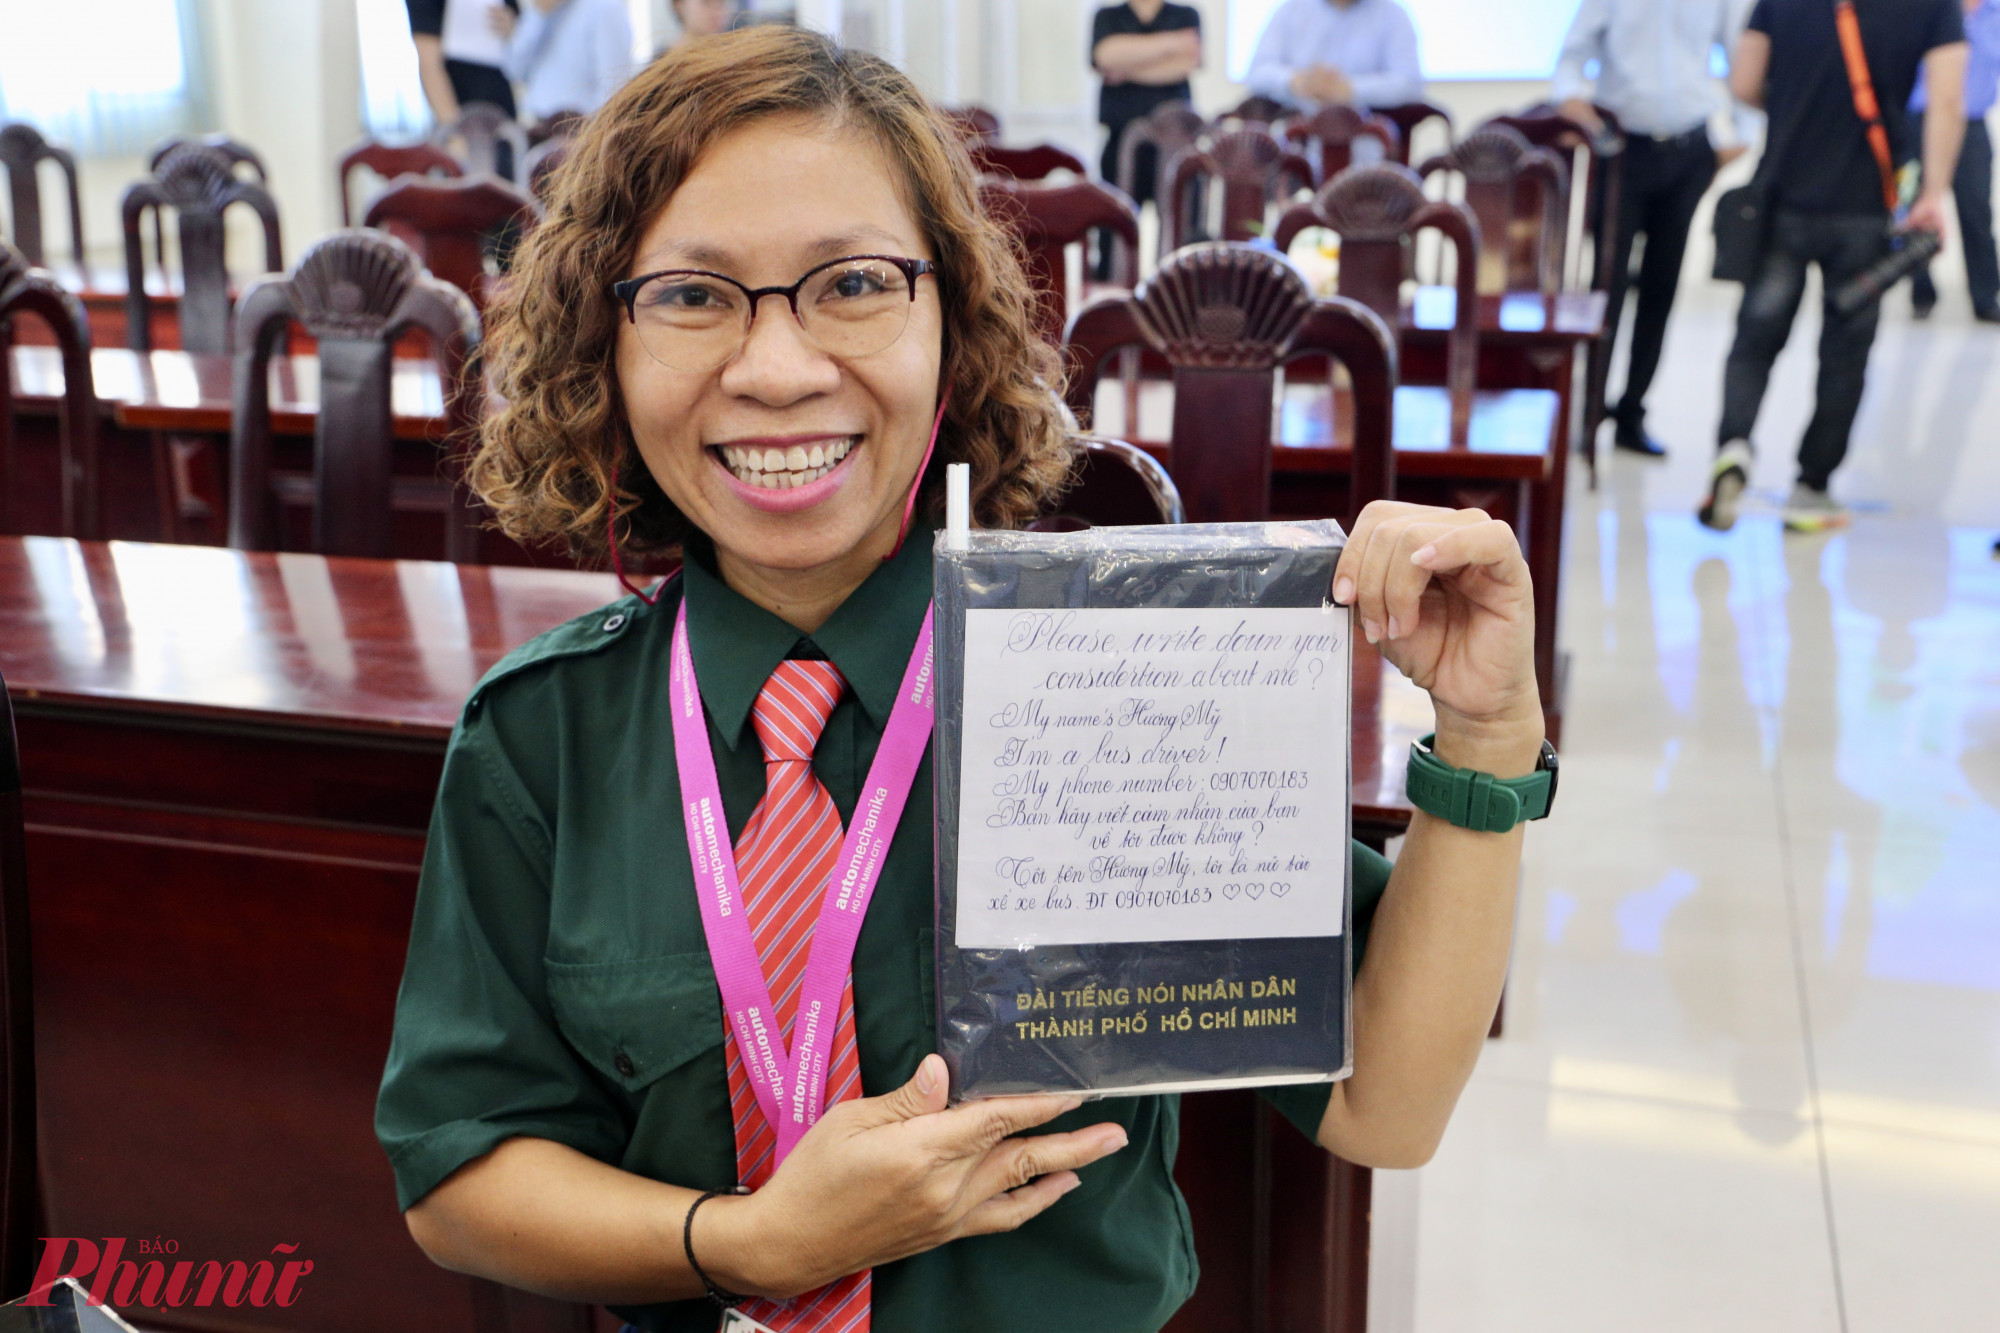 Please, write down your
considertion about me?
My name's Hương Mỹ
I'm a bus driver!
My phone number: 0907070183
Bạn hãy viết cảm nhận của bạn
về tôi được không?
Tôi tên Hương Mỹ, tôi là nữ tài
xế xe bus. ĐT 0907070183 ♡♡♡
ĐÀI TIẾNG NÓI NHÂN DÂN
THÀNH PHỐ HỒ CHÍ MINH
automechanika
HO CHI MINH CITY
automechanika
HO CHI MINH CITY
automechanika
HO CHI MINH CITY
automechanika
HO CHI MINH CITY
BÁO
Phụ nữ